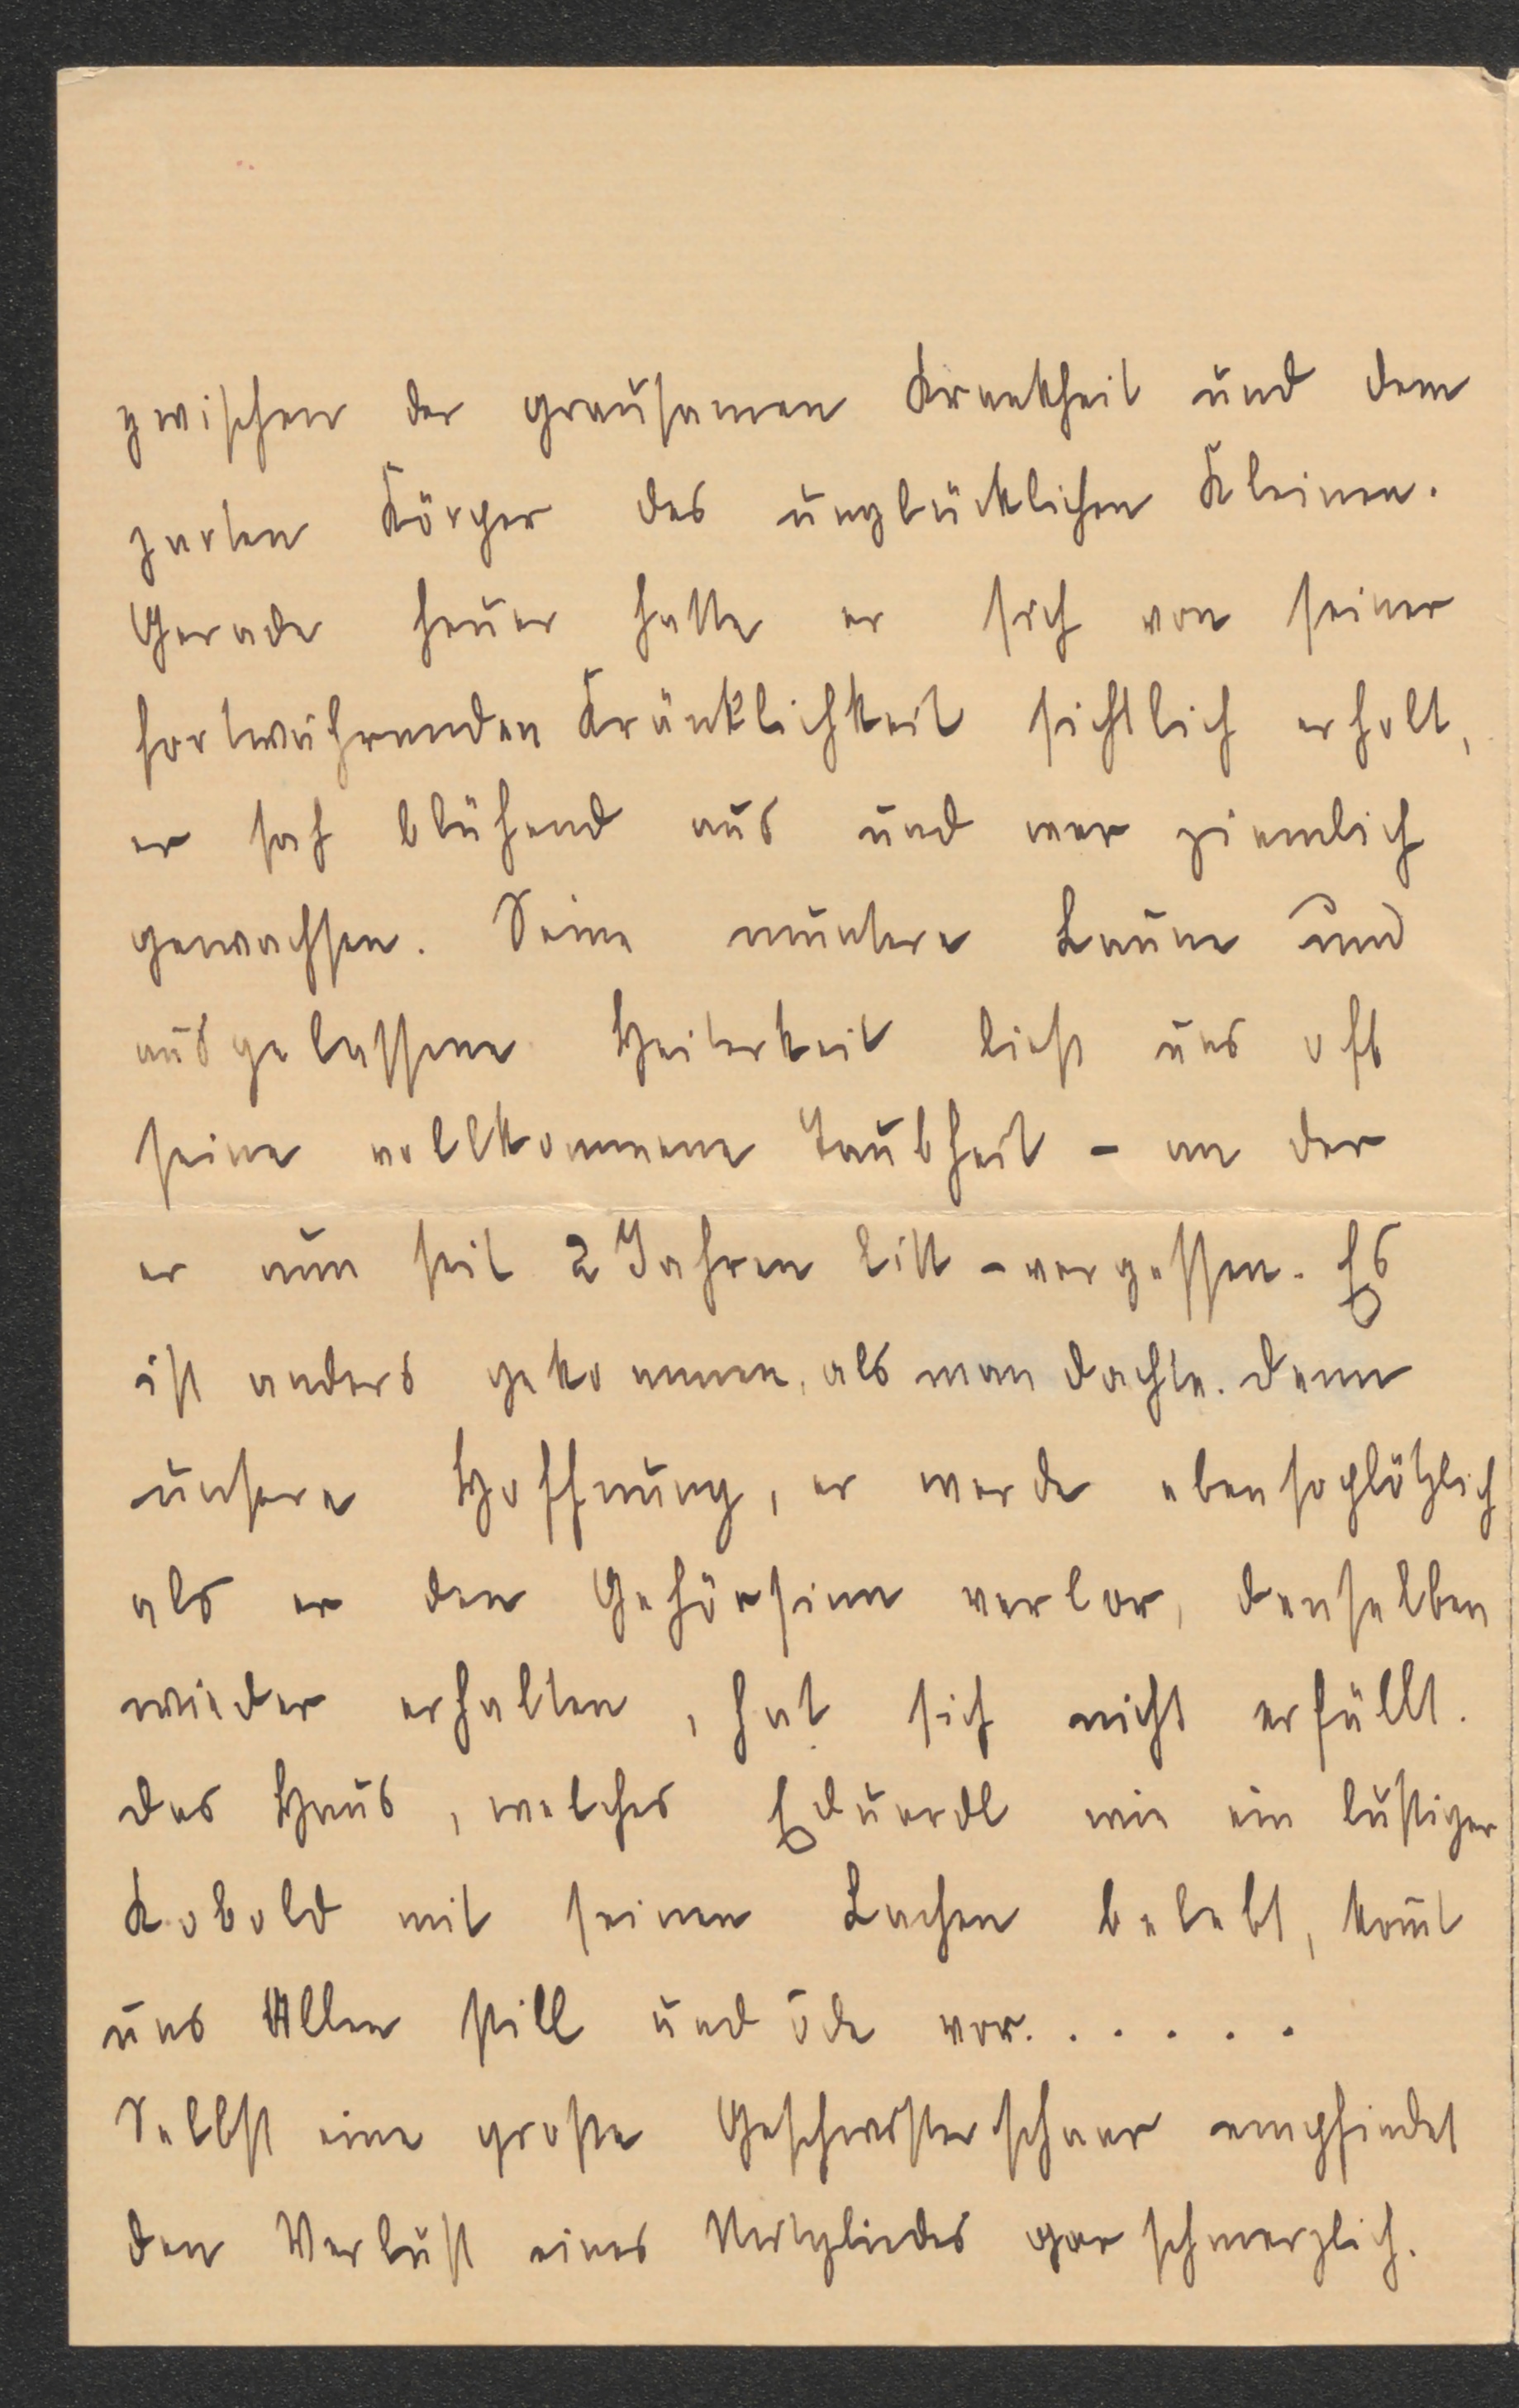 zwischen der grausamen Krankheit und dem
zarten Körper des unglücklichen Kleinen.
Gerade heuer hatte er sich von seiner
fortwährenden Kränklichkeit sichtlich erholt,
er sah blühend aus und war ziemlich
gewachsen. Seine muntere Laune und
ausgelassene Heiterkeit ließ uns oft
seine vollkommene Taubheit - an der
er nun seit 2 Jahren litt - vergessen. Es
ist anders gekommen, als man dachte. Denn
unsere Hoffnung, er werde ebensoplötzlich
als er den Gehörsinn verlor, denselben
wieder erhalten, hat sich nicht erfüllt.
Das Haus, welches Eduardl wie ein lustiger
Kobold mit seinen Lachen belebt, kom̅t
uns Allen still und öde vor......
Selbst eine große Geschwisterschaar empfindet
den Verlust eines Mitgliedes gar schmerzlich.